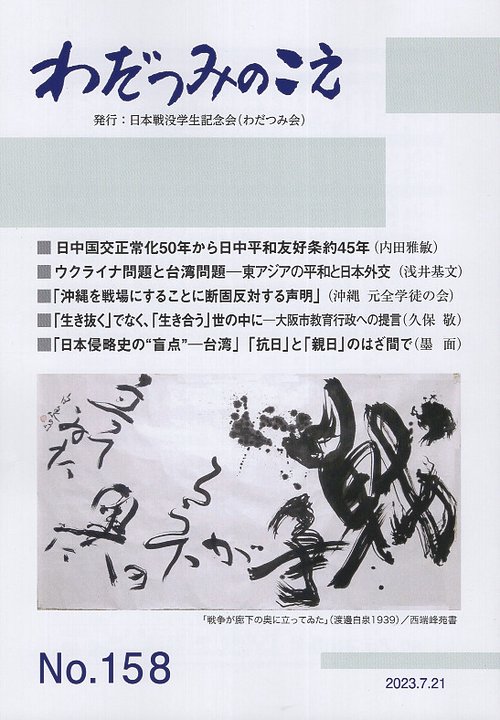 わだつみのこえ
発行：日本戦没学生記念会（わだつみ会）
■ 日中国交正常化50年から日中平和友好条約45年（内田雅敏）
■ ウクライナ問題と台湾問題―東アジアの平和と日本外交（浅井基文）
■「沖縄を戦場にすることに断固反対する声明」（沖縄 元全学徒の会）
■「生き抜く」でなく、「生き合う」世の中に―大阪市教育行政への提言（久保 敬）
■「日本侵略史の“盲点”―台湾」「抗日」と「親日」のはざ間で（墨 面）
戦争が
廊下の奥に
立って
ゐた
「戦争が廊下の奥に立ってゐた」（渡邊白泉1939）／西端峰苑書
No.158
2023.7.21